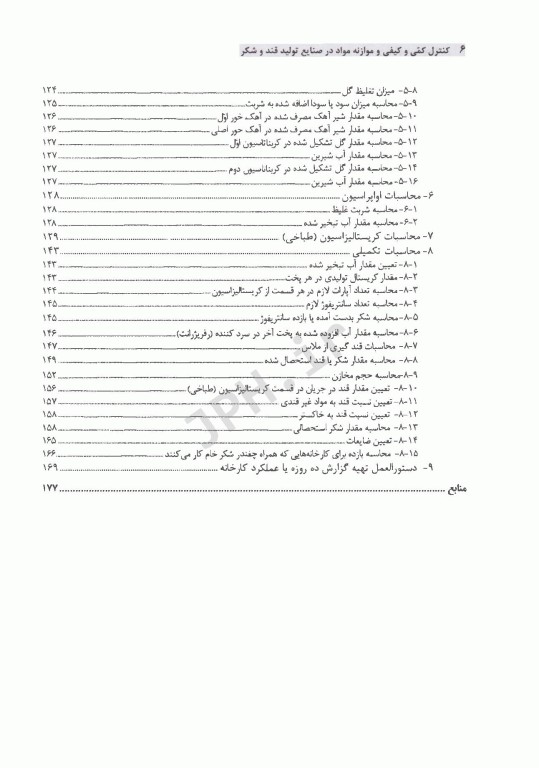 ۶ کنترل کمّی و کیفی و موازنه مواد در صنایع تولید قند و شکر
۵-۸- میزان تغلیظ گل ۱۲۴
۵-۹- محاسبه میزان سود یا سودا اضافه شده به شربت ۱۲۵
۵-۱۰- محاسبه مقدار شیر آهک مصرف شده در آهک خور اوّل ۱۲۶
۵-۱۱- محاسبه مقدار شیر آهک مصرف شده در آهک خور اصلی ۱۲۶
۵-۱۲- محاسبه مقدار گل تشکیل شده در کربناتاسیون اوّل ۱۲۷
۵-۱۳- محاسبه مقدار آب شیرین ۱۲۷
۵-۱۴- محاسبه مقدار گل تشکیل شده در کربناتاسیون دوم ۱۲۷
۵-۱۶- محاسبه مقدار آب شیرین ۱۲۷
۶- محاسبات اواپراسیون ۱۲۸
۶-۱- محاسبه شربت غلیظ ۱۲۸
۶-۲- محاسبه مقدار آب تبخیر شده ۱۲۸
۷- محاسبات کریستالیزاسیون (طباخی) ۱۲۹
۸- محاسبات تکمیلی ۱۴۳
۸-۱- تعیین مقدار آب تبخیر شده ۱۴۳
۸-۲- مقدار کریستال تولیدی در هر پخت ۱۴۳
۸-۳- محاسبه تعداد آپارات لازم در هر قسمت از کریستالیزاسیون ۱۴۴
۸-۴- محاسبه تعداد سانتریفوژ لازم ۱۴۵
۸-۵- محاسبه شکر بدست آمده یا بازده سانتریفوژ ۱۴۵
۸-۶- محاسبه مقدار آب افزوده شده به پخت آخر در سرد کننده (رفریژرانت) ۱۴۶
۸-۷- محاسبات قند گیری از ملاس ۱۴۷
۸-۸- محاسبه مقدار شکر یا قند استحصال شده ۱۴۹
۸-۹- محاسبه حجم مخازن ۱۵۲
۸-۱۰- تعیین مقدار قند در جریان در قسمت کریستالیزاسیون (طباخی) ۱۵۶
۸-۱۱- تعیین نسبت قند به مواد غیر قندی ۱۵۷
۸-۱۲- تعیین نسبت قند به خاکستر ۱۵۸
۸-۱۳- محاسبه مقدار شکر استحصالی ۱۵۸
۸-۱۴- تعیین ضایعات ۱۶۵
۸-۱۵- محاسبه بازده برای کارخانه‌هایی که همراه چغندر شکر خام کار می‌کنند ۱۶۶
۹- دستورالعمل تهیه گزارش ده روزه یا عملکرد کارخانه ۱۶۹
منابع ۱۷۷